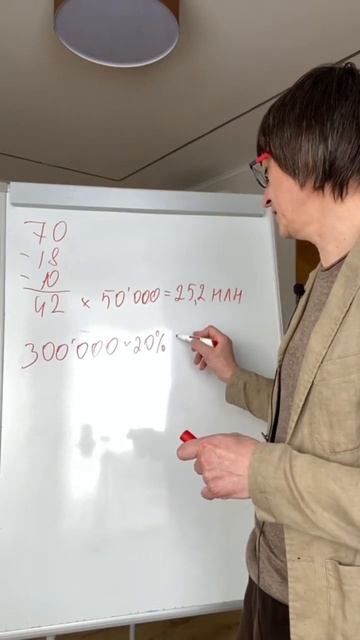 70
- 18
- 10
42 × 50'000 = 25,2 млн
300'000 - 20%